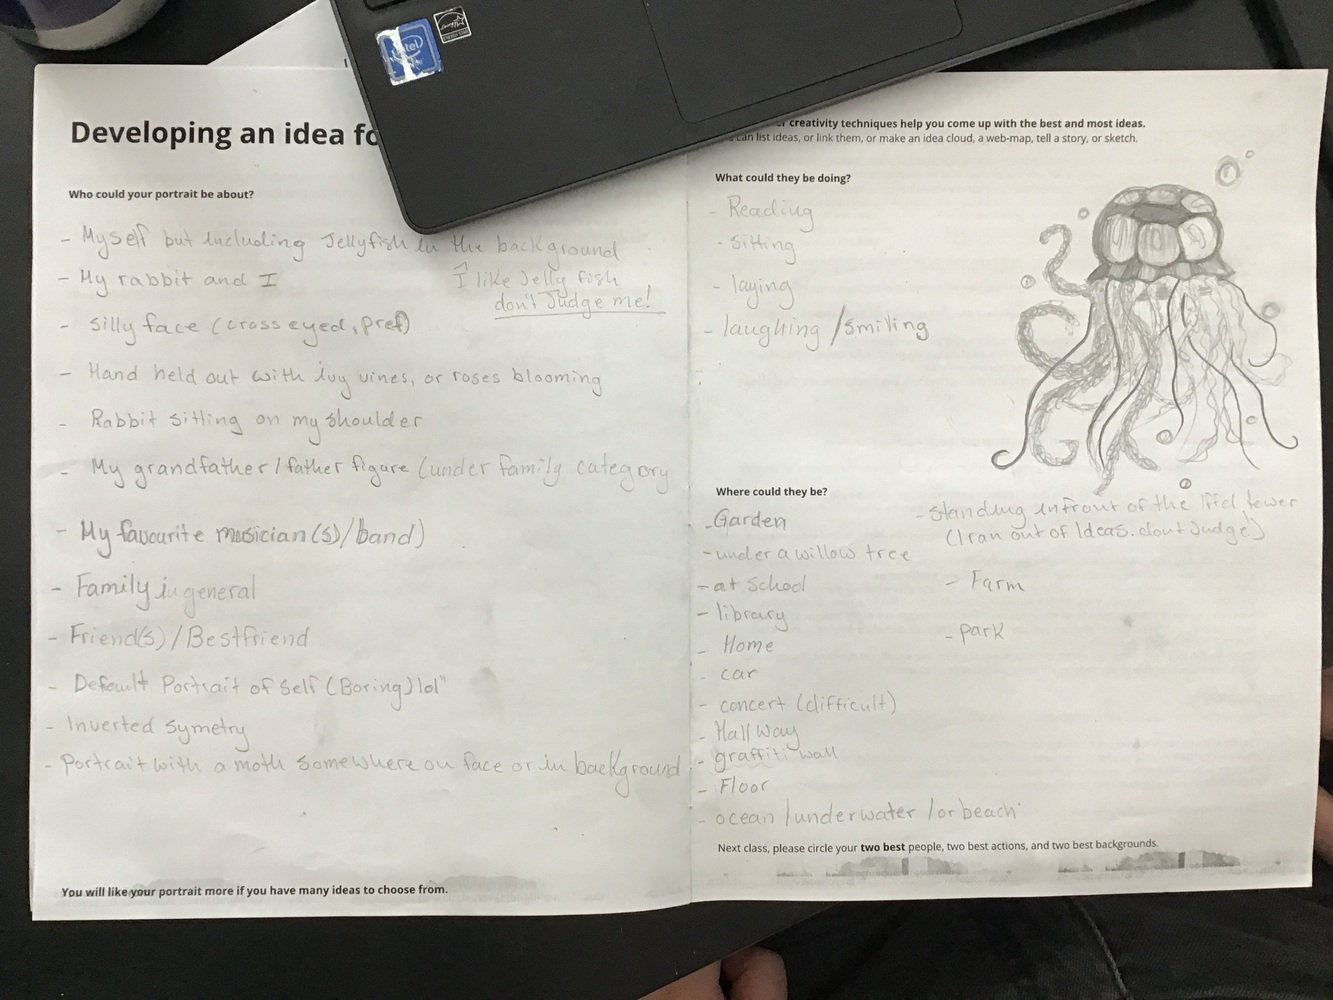 intel
Developing an idea fo
Who could your portrait be about?
- Myself but including Jellyfish in the background
I like Jelly fish
don't Judge me!
- My rabbit and I
- Silly face (cross eyed, pref)
- Hand held out with ivy vines, or roses blooming
- Rabbit sitting on my shoulder
- My grandfather / father figure (under family category
- My favourite musician(s)/band)
- Family in general
- Friend(s)/Bestfriend
- Default Portrait of Self (Boring) lol"
- Inverted Symetry
- Portrait with a moth somewhere on face or in background
You will like your portrait more if you have many ideas to choose from.
creativity techniques help you come up with the best and most ideas.
can list ideas, or link them, or make an idea cloud, a web-map, tell a story, or sketch.
What could they be doing?
- Reading
- Sitting
- laying
- laughing /smiling
Where could they be?
- Garden
- under a willow tree
- at School
- library
- Home
- car
- concert (difficult)
- Hall way
- graffiti wall
- Floor
- ocean /underwater /or beach
- Standing infront of the Iffel tower
(I ran out of Ideas. dont Judge)
- Farm
- park
Next class, please circle your two best people, two best actions, and two best backgrounds.